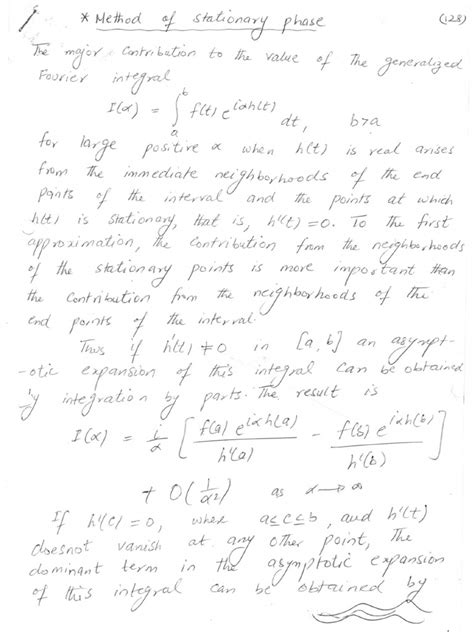 * Method of stationary phase (128)
The major contribution to the value of the generalized
Fourier integral
I(α) = ∫ₐᵇ f(t) e^{iαh(t)} dt, b>a
for large positive α when h(t) is real arises
from the immediate neighborhoods of the end
points of the interval and the points at which
h(t) is stationary, that is, h'(t) = 0. To the first
approximation, the contribution from the neighborhoods
of the stationary points is more important than
the contribution from the neighborhoods of the
end points of the interval.
Thus if h'(t) ≠ 0 in [a, b] an asympt-
-otic expansion of this integral can be obtained
by integration by parts. The result is
I(α) = i/α [ f(a) e^{iαh(a)} / h'(a) - f(b) e^{iαh(b)} / h'(b) ]
+ O(1/α2) as α → ∞
If h'(c) = 0, where a≤c≤b, and h'(t)
doesnot vanish at any other point, the
dominant term in the asymptotic expansion
of this integral can be obtained by